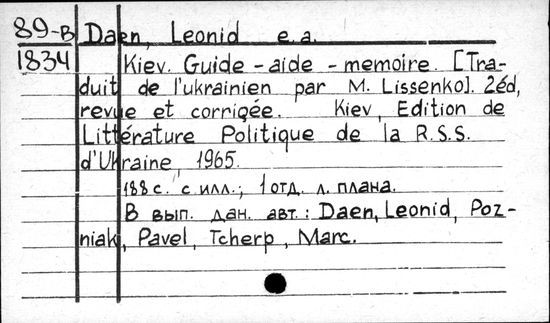 89-В Daen, Leonid e.a.
1834 Kiev. Guide-aide-memoire. [Tra-
duit de l'ukrainien par M. Lissenko]. 2éd,
revue et corrigée. Kiev, Edition de
Littérature Politique de la R.S.S.
d'Ukraine, 1965.
188 с. с илл.; 1 отд. л. плана.
В вып. дан. авт.: Daen, Leonid, Poz-
niak, Pavel, Tcherp, Marc.